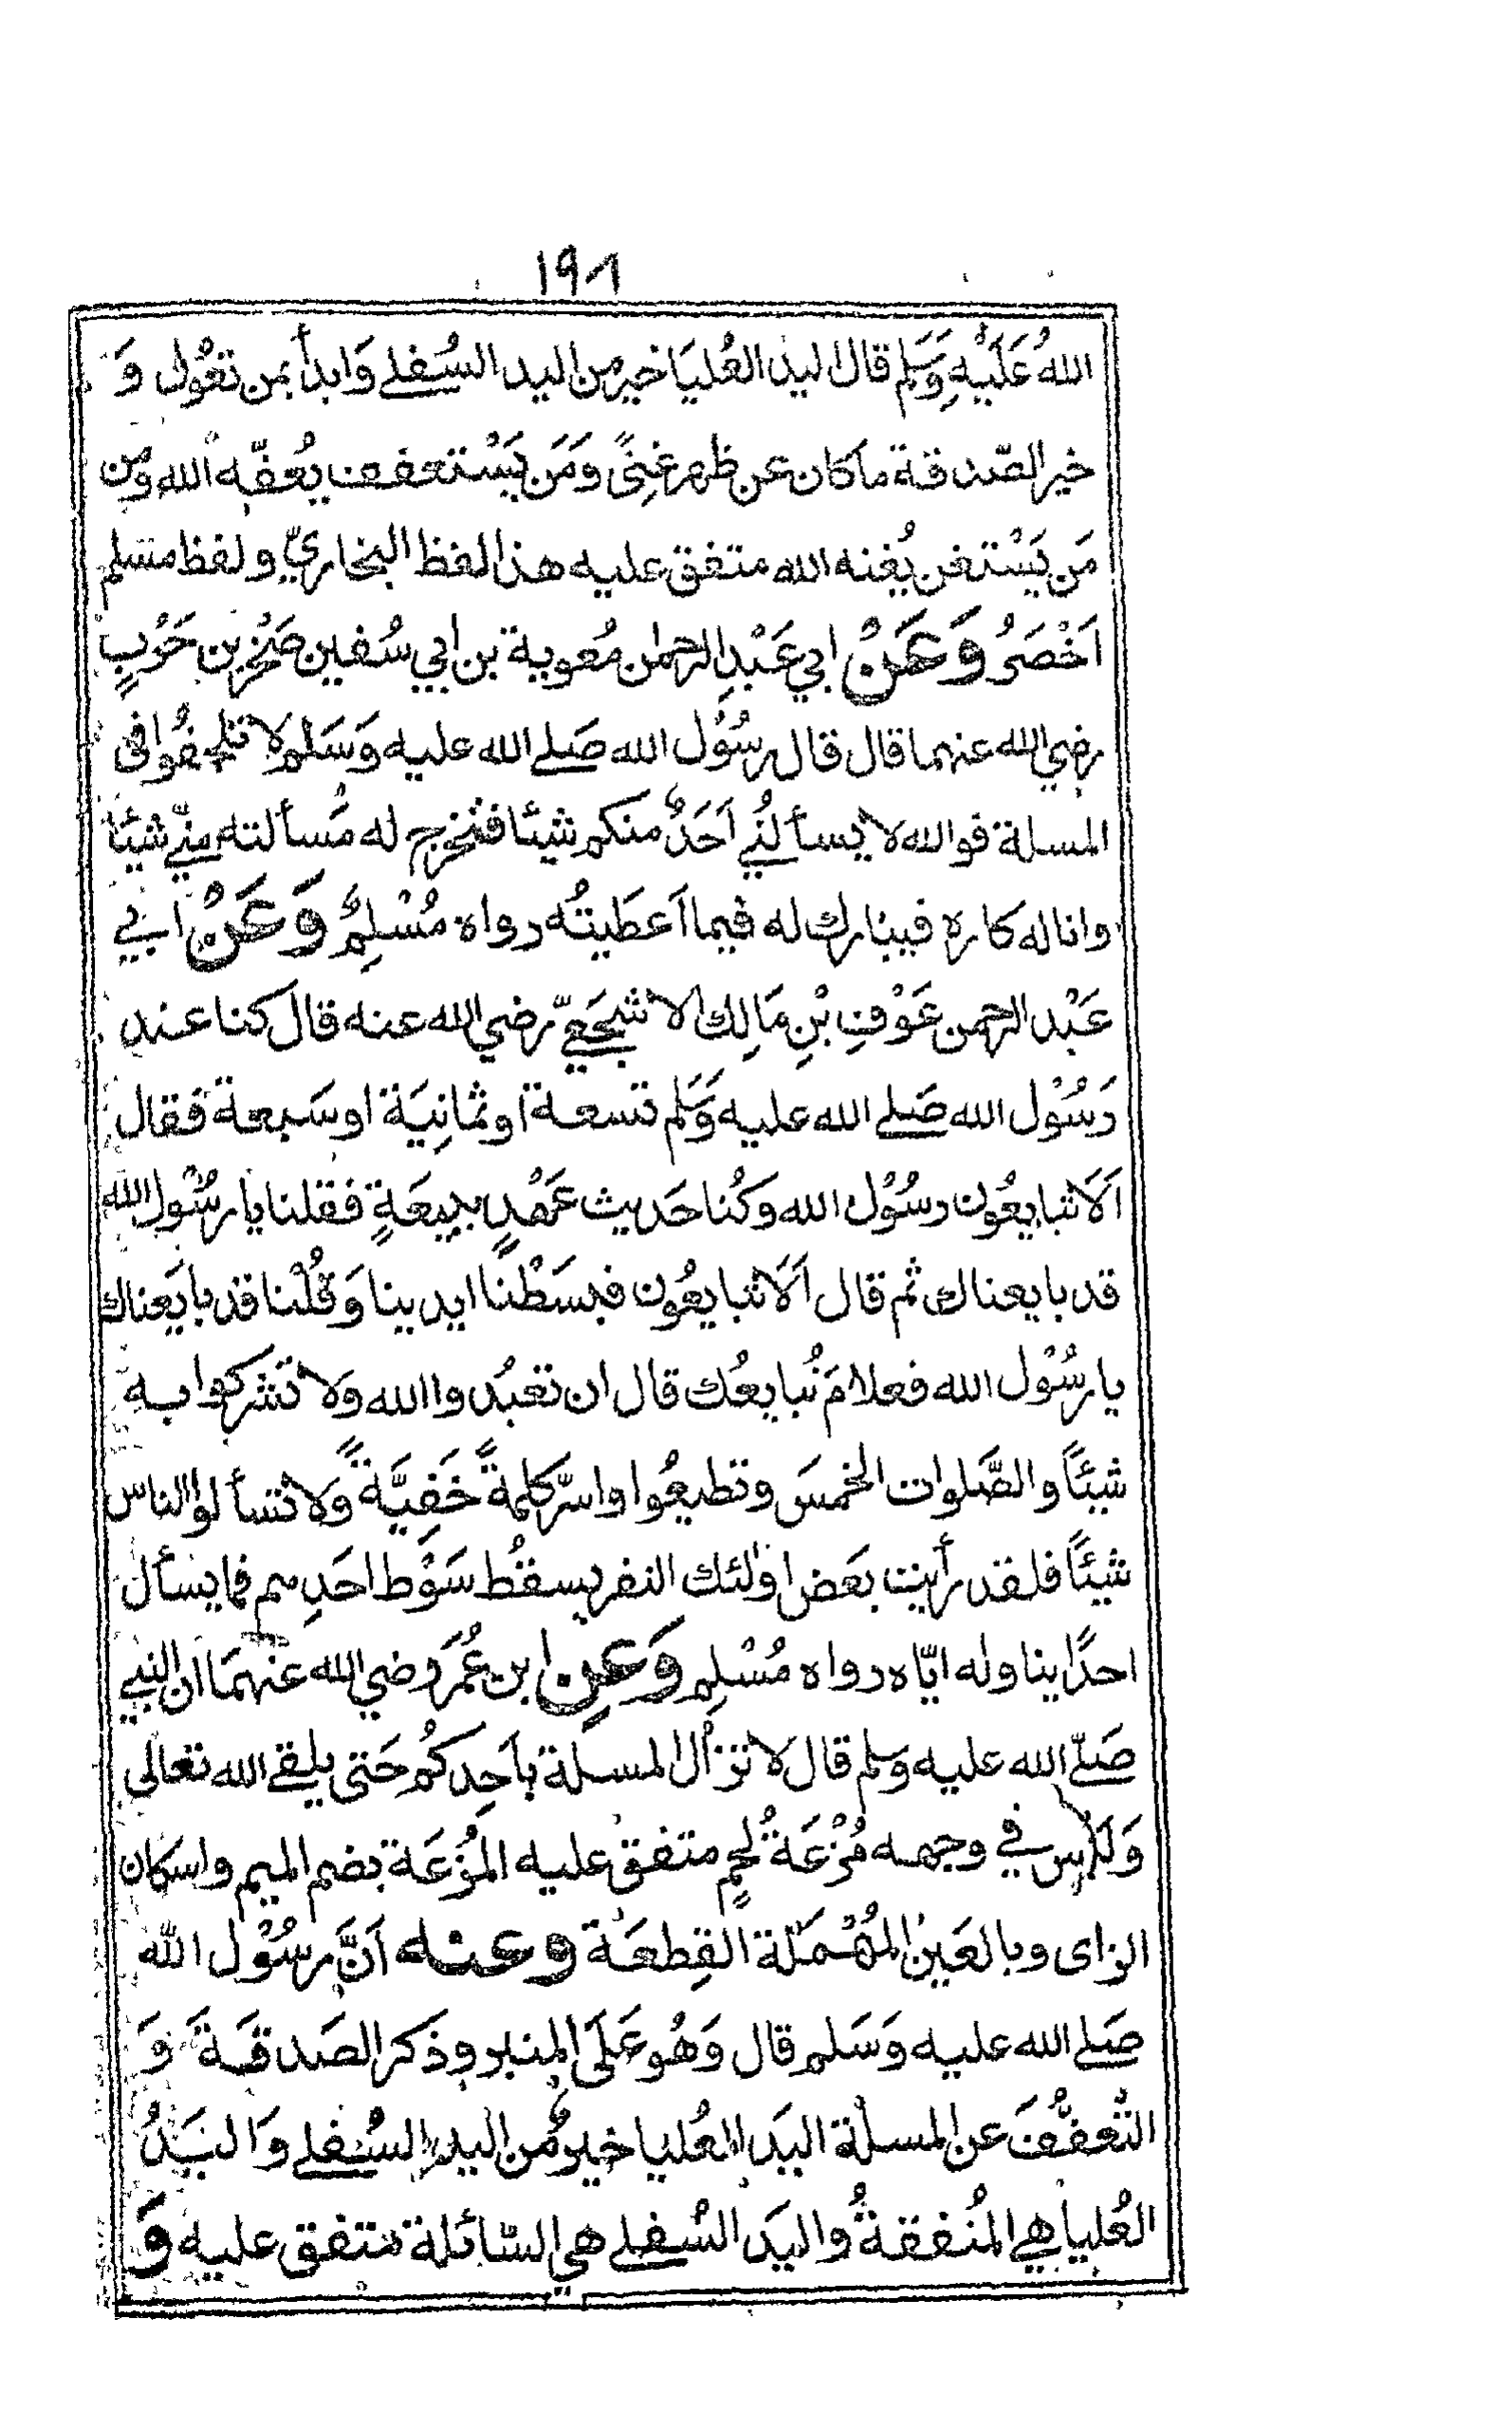 ١٩٨
اللهُ عَلَيْهِ وَسَلَم قال اليد العُليَا خير من اليد السُفلے وَابدأ بمن تعُول وَ
خير الصّدقة ما كان عن ظهر غِنًى وَمَن يَسْتعفف يُعفّه الله ومن
مَن يَسْتغن يُغنه الله متفق عليه هذا لفظ البخاريّ ولفظ مسلم
اَخْصَرُ وَعَنْ ابي عَبْدِ الرحمٰن مُعوية بن ابي سُفين صَخْر بن حَرْبٍ
رضي الله عنهما قال قال رسُوْل الله صَلے الله عليه وَسَلم لا تلحفُوا فى
المسلة فوالله لا يسألُنے اَحَدٌ منكم شيئا فتخرج له مَسألته منّے شيئًا
وانا له كاره فيبارك له فيما اَعطَيتُه رواه مُسْلِمٌ وَعَنْ ابے
عَبْد الرحمن عَوْفِ بْنِ مَالِك الاشجَعِيّ رضي الله عنه قال كنا عند
رَسُوْل الله صَلے الله عليه وَسَلَم تسعة او ثمانِيَة او سَبعة فقال
اَلَا تبايعُون رسُوْل الله وكُنا حَديث عَهْدٍ ببيعَةٍ فقلنا يا رسُوْل الله
قد بايعناك ثم قال اَلَا تبايعُون فبسَطْنا ايدينا وَقُلْنا قد بايَعناك
يا رسُوْل الله فعلامَ نُبايعُك قال ان تعبُدوا الله وَلا تشركوا به
شيئًا والصَّلوات الخمسَ وتطيعُوا واسرّ كلمةً خَفِيَّةً ولا تسألوا الناس
شيئًا فلقد رأيت بَعَض اولٰئك النفر يسقُط سَوْط احَدِهم فما يسأل
احدًا يناوله ايّاه رواه مُسْلِم وَعَنِ ابن عُمَر رضي الله عنهمَا ان النبے
صَلّے الله عليه وسلم قال لا تزال المسلة بأحِدِكُم حَتى يلقے الله تعالى
وَلَيْس في وجهه مُزْعَةُ لحمٍ متفق عليه المُزْعَة بضم الميم واسكان
الزاى وبالعَين المُهْمَلَة القِطعَة وعنه اَنَّ رسُوْل الله
صَلے الله عليه وَسَلم قال وَهُو عَلَى المنبر وذكر الصَدقَة وَ
التّعفّفَ عن المسلة اليَد العُليا خيرٌ من اليد السُفلے وَاليَدُ
العُليا هے المُنفقةُ واليَد السُفلے هي السّائلة متفق عليه وَ